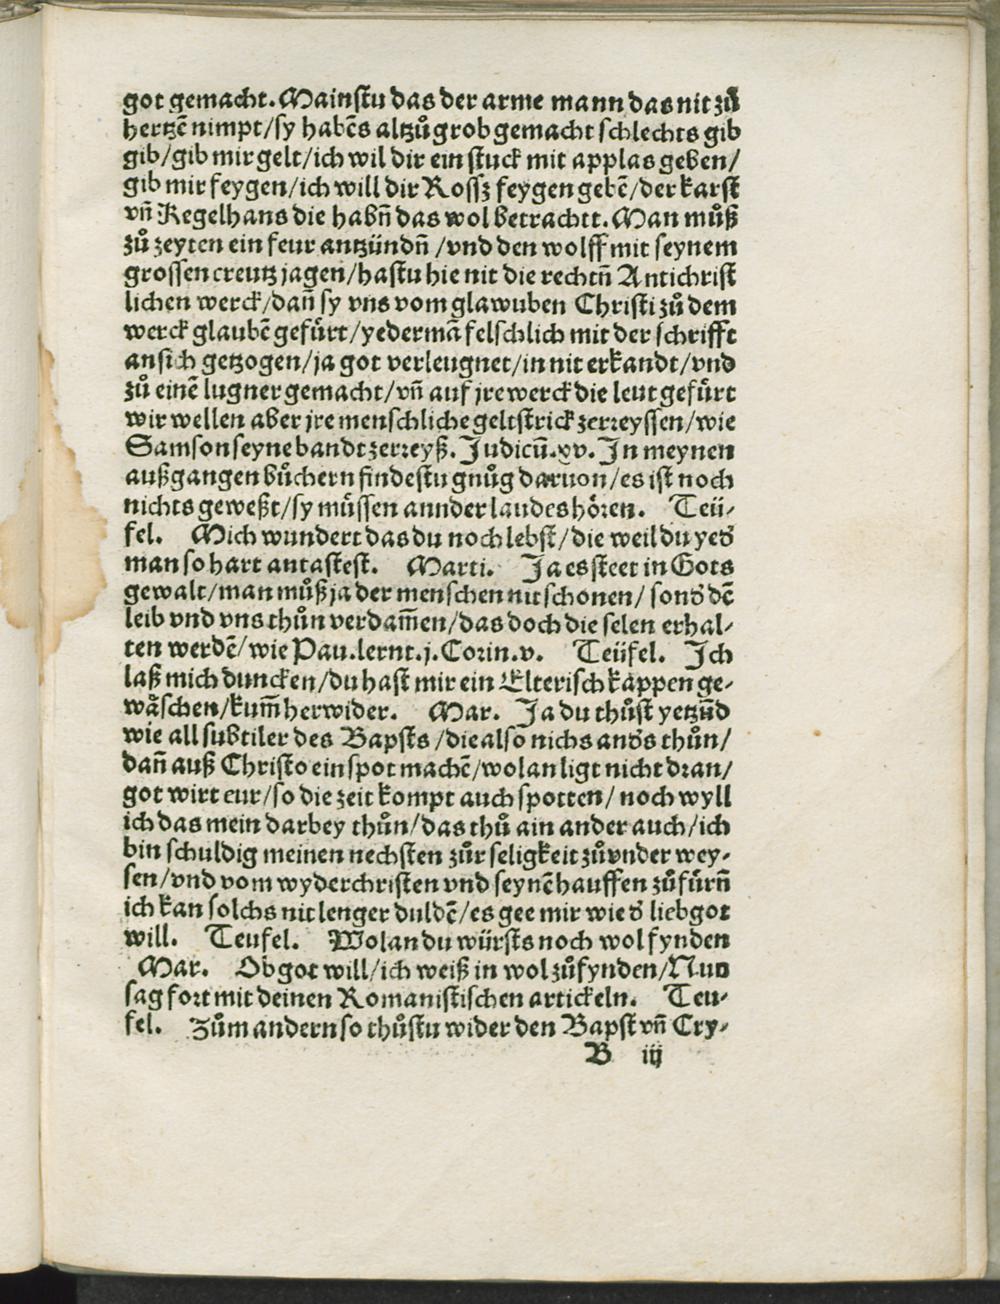 got gemacht. Mainstu das der arme mann das nit zů
hertzē nimpt/sy habēs altzů grob gemacht schlechts gib
gib/gib mir gelt/ich wil dir ein stuck mit applas geben/
gib mir feygen/ich will dir Rossz feygen gebē/der karst
vn̄ Kegelhans die habn̄ das wol betrachtt. Man můß
zů zeyten ein feur antzündn̄ /vnd den wolff mit seynem
grossen creutz jagen/hastu hie nit die rechtn̄ Antichrist
lichen werck/dan̄ sy vns vom glawuben Christi zů dem
werck glaubē gefůrt/yedermā felschlich mit der schrifft
an sich getzogen/ja got verleugnet/in nit erkandt/vnd
zů einē lugner gemacht/vn̄ auf jre werck die leut gefůrt
wir wellen aber jre menschliche geltstrick zerreyssen/wie
Samson seyne bandt zerreyß. Judicū.xv. In meynen
außgangen bůchern findestu gnůg daruon/es ist noch
nichts geweßt/sy müssen annder laudes hören. Teü-
fel. Mich wundert das du noch lebst/die weil du yed'
man so hart antastest. Marti. Ja es steet in Gots
gewalt/man můß ja der menschen nit schonen/ sond' dē
leib vnd vns thůn verdam̄en/das doch die selen erhal-
ten werdē/wie Pau.lernt.j.Corin.v. Teüfel. Ich
laß mich duncken/du hast mir ein Elterisch kappen ge-
wåschen/kum̄ herwider. Mar. Ja du thůst yetzūd
wie all subtiler des Bapsts /die also nichs and's thůn/
dan̄ auß Christo ein spot machē/wolan ligt nicht dran/
got wirt eur/so die zeit kompt auch spotten/ noch wyll
ich das mein darbey thůn/das thů ain ander auch/ich
bin schuldig meinen nechsten zůr seligkeit zů vnder wey-
sen/vnd vom wyderchristen vnd seynē hauffen zů fůrn̄
ich kan solchs nit lenger duldē/es gee mir wie d' lieb got
will. Teufel. Wolan du würsts noch wol fynden
Mar. Ob got will/ich weiß in wol zů fynden/Nun
sag fort mit deinen Romanistischen artickeln. Teu-
fel. Zům andern so thůstu wider den Bapst vn̄ Cry-
B iij